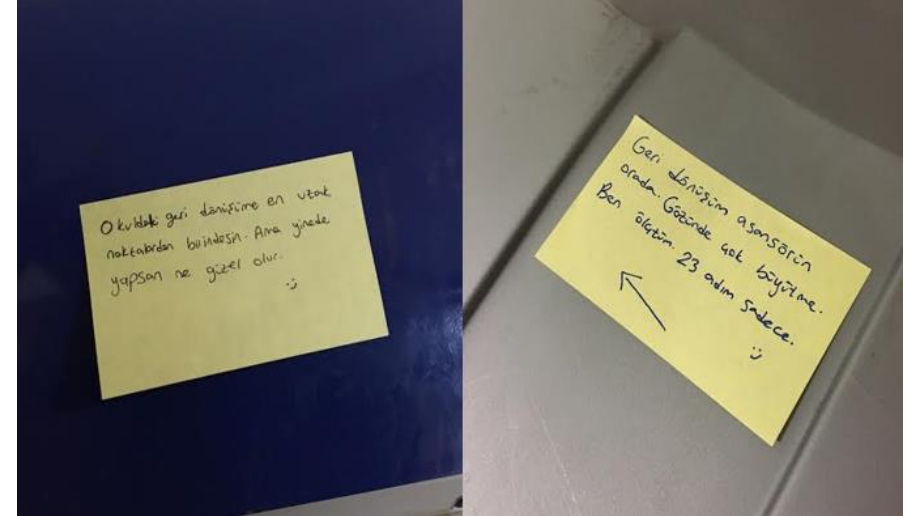 Okuldaki geri dönüşüme en uzak
noktalardan birindesin. Ama yinede
yapsan ne güzel olur.
:)
Geri dönüşüm asansörün
orada. Gözünde çok büyütme.
Ben ölçtüm. 23 adım sadece.
:)